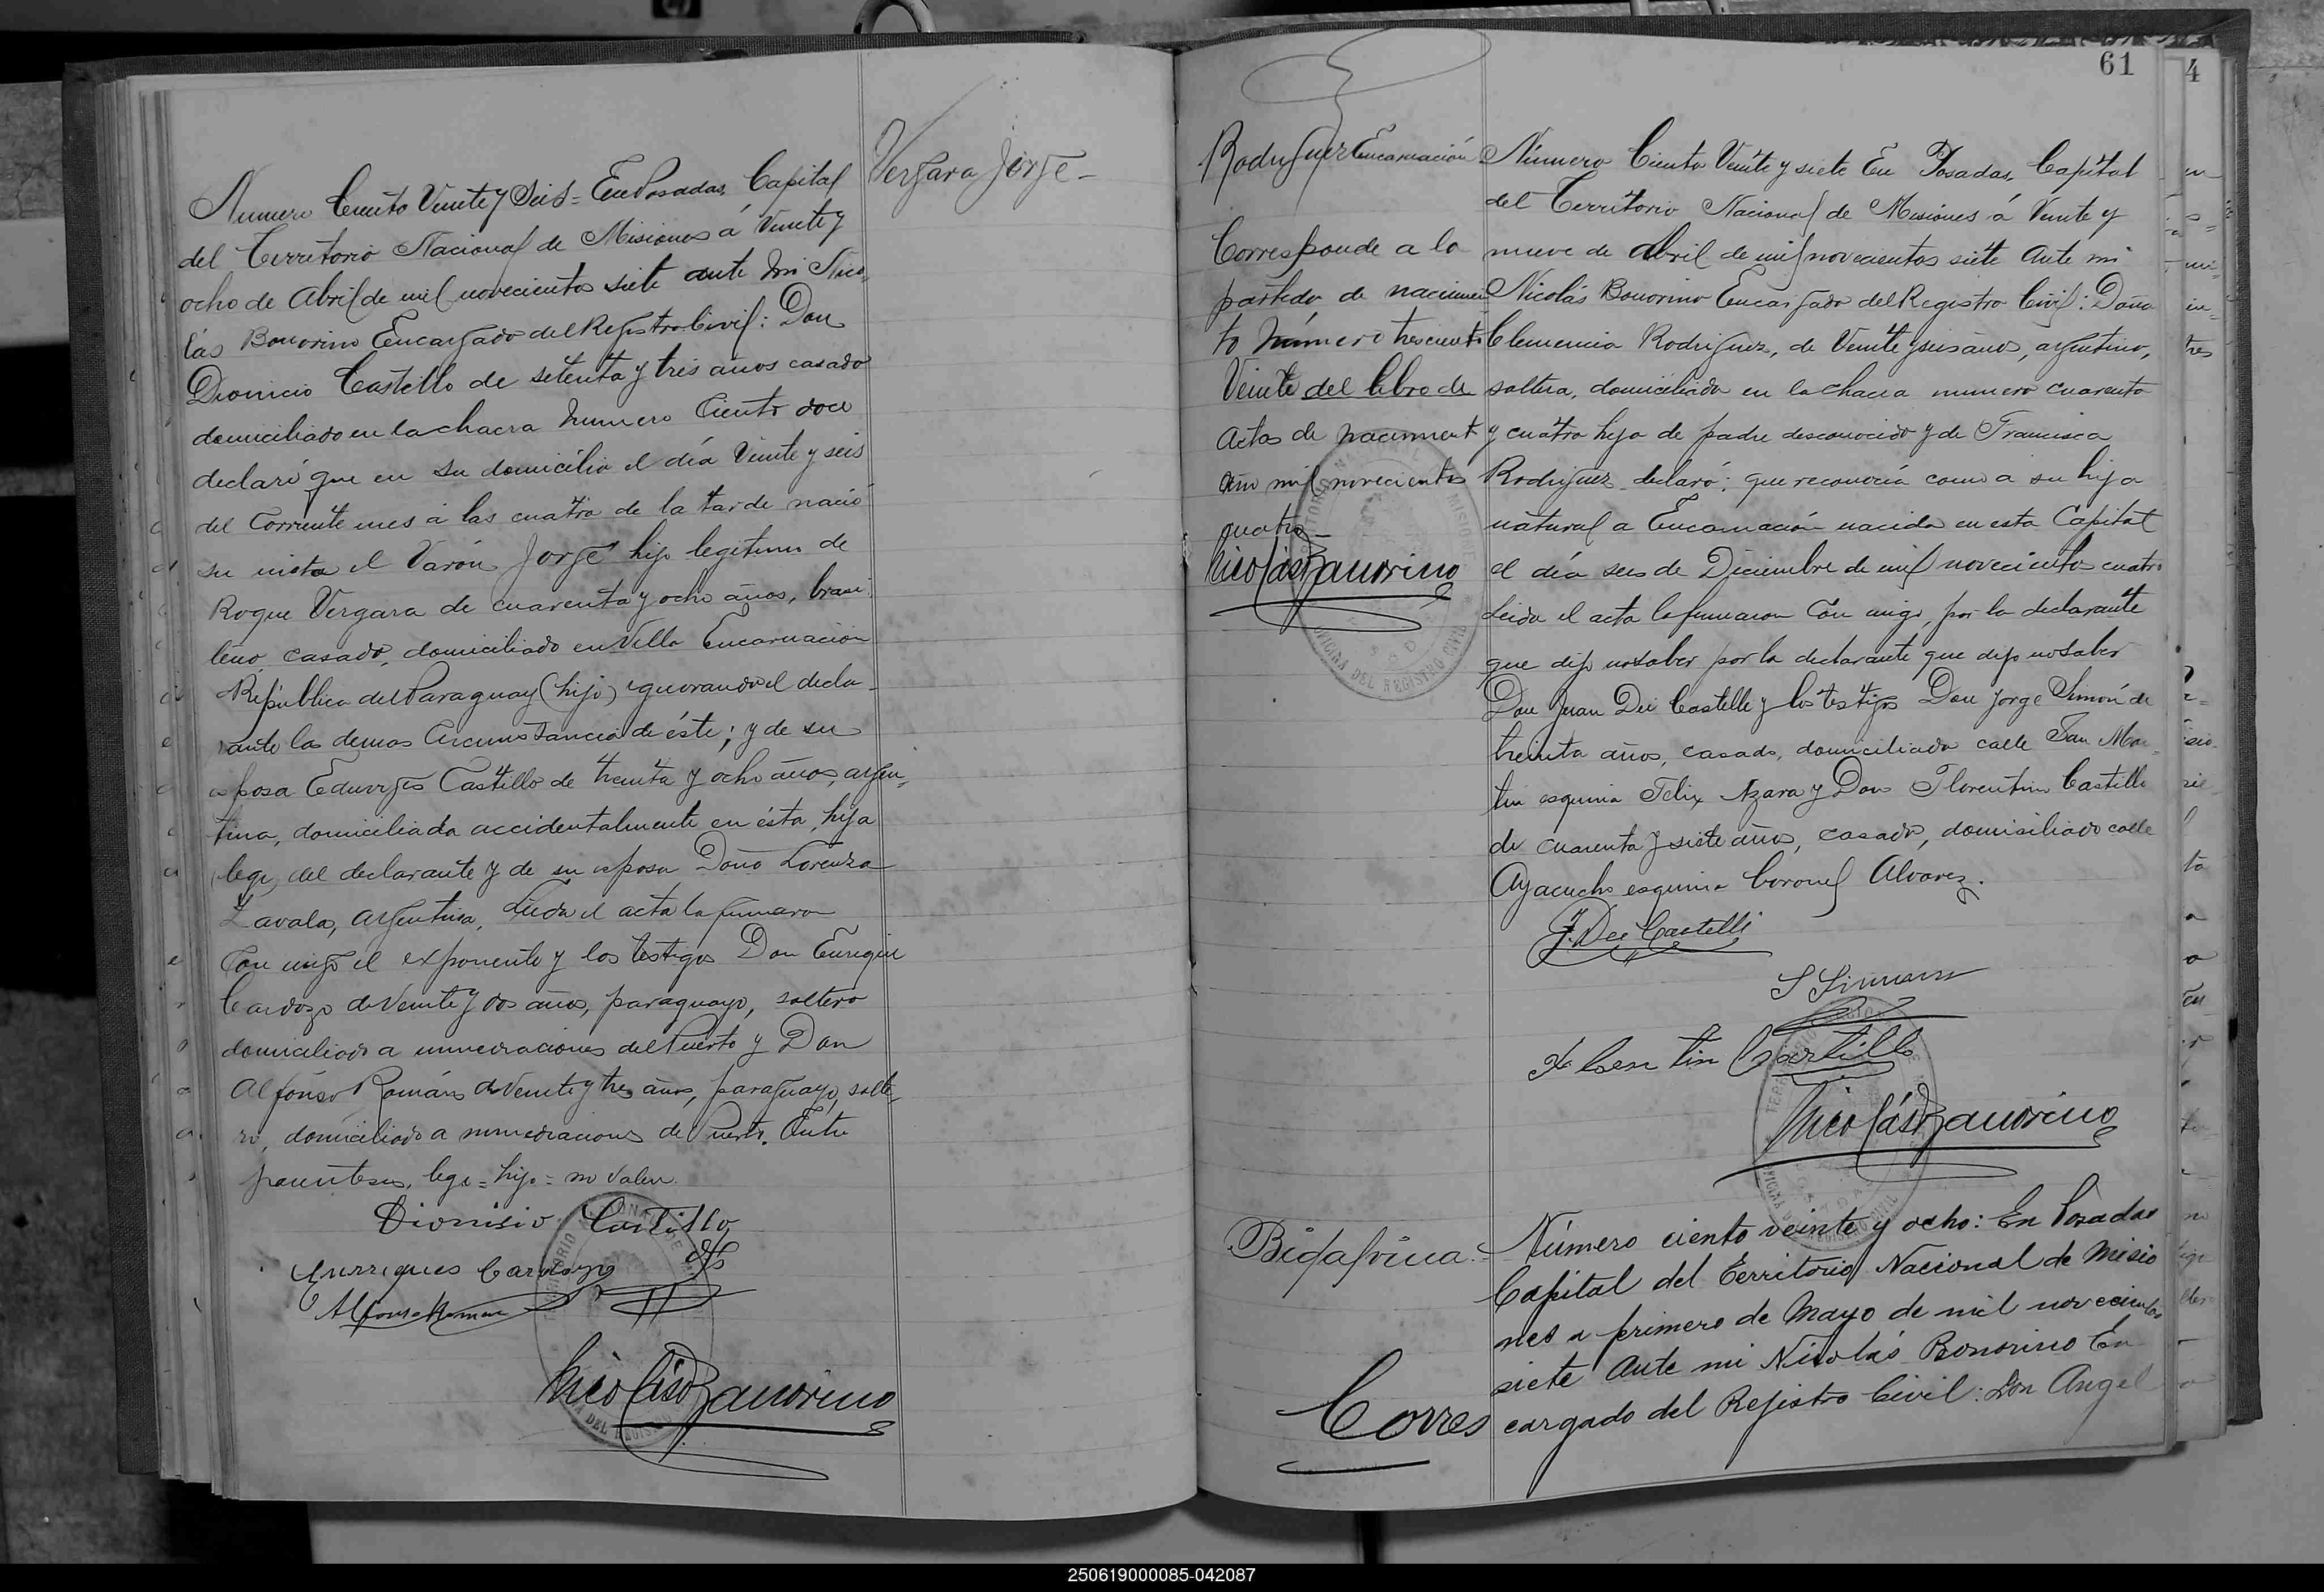 Numero Ciento Veinte y Seis = En Posadas, Capital
del Territorio Nacional de Misiones á Veinte y
ocho de Abril de mil novecientos siete ante mi Nico,
lás Bonorino Encargado del Registro Civil: Don
Dionicio Castillo de setenta y tres años casado
domiciliado en la chacra numero Ciento doce
declaró que en su domicilio el día Veinte y seis
del Corriente mes á las cuatro de la tarde nació
su nieto el Varón Jorge hijo legitimo de
Roque Vergara de cuarenta y ocho años, brasi
leño, casado, domiciliado en Villa Encarnación
República del Paraguay (hijo) ignorando el decla-
rante las demas Circunstancia de éste; y de su
esposa Eduvijes Castillo de treinta y ocho años, argen,
tina, domiciliada accidentalmente en ésta, hija
(lege) del declarante y de su esposa Doña Lorenza
Zavala, argentina, Leida el acta la firmaron
con migo el exponente y los testigos Don Enrique
Cardozo de Veinte y dos años, paraguayo, soltero
domiciliado a inmediaciones del Puerto y Don
Alfonso Román de Veinte y tres años, paraguayo, solte,
ro, domiciliado a inmediaciones del Puerto. Entre
parentesis, lege = hijo = no valen.
Dionisio Castillo
Enrriques Cardozo
Alfonso Roman
Nicolás Bonorino
Vergara Jorge -
61
4
Rodriguez Encarnación
Corresponde a la
partida de nacimien
to número trescientos
Veinte del libro de
Actas de nacimient
año mil novecientos
cuatro -
Nicolás Bonorino
Número Ciento Veinte y siete En Posadas, Capital
del Territorio Nacional de Misiones á Veinte y
nueve de Abril de mil novecientos siete Ante mi
Nicolás Bonorino Encargado del Registro Civil: Doña
Clemencia Rodriguez, de Veinte y seis años, argentina,
soltera, domiciliada en la chacra numero cuarenta
y cuatro hija de padre desconocido y de Francisca
Rodriguez declaró: que reconocía como a su hija
natural a Encarnación nacida en esta Capital
el día seis de Diciembre de mil novecientos cuatro
Leida el acta la firmaron Con migo, por la declarante
que dijo no saber por la declarante que dijo no saber
Don Juan Dei Castelle y los testigos Don Jorge Simón de
treinta años, casado, domiciliado calle San Mar=
tin esquina Felix Azara y Don Florentin Castillo
de cuarenta y siete años, casado, domisiliado calle
Ayacucho esquina Coronel Alvarez.
J. Dei Castelli
Florentin Castillo
Nicolás Bonorino
Bigafrina =
Corres
Número ciento veinte y ocho: En Posadas
Capital del Territorio Nacional de Misio
nes a primero de Mayo de mil novecientos
siete Ante mi Nicolás Bonorino En
cargado del Registro Civil: Don Angel
250619000085-042087